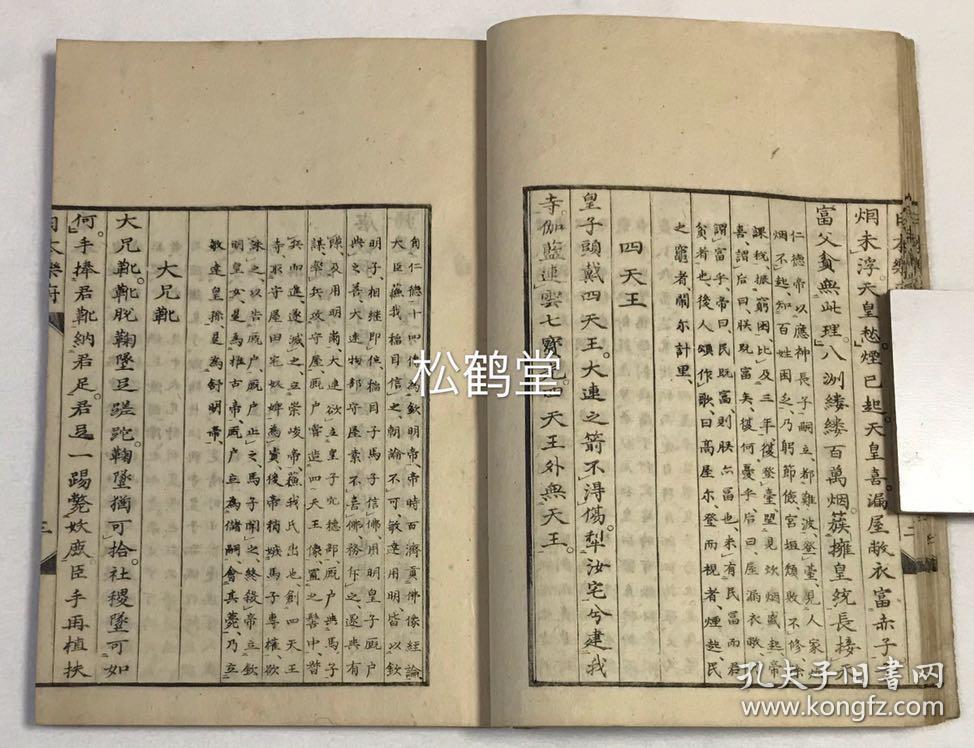 烟未浮天皇愁。煙已起。天皇喜。漏屋敝衣富赤子。
富父貧無此理。八洲縷縷百萬烟。簇擁皇統長接
仁德帝以應神長子嗣立、都難波、登臺、見人家
烟不起、知百姓困乏、乃躬節儉、宮垣頹敗不修、除
課稅、振窮困、比及三年、復登臺望、見炊烟盛起、帝
喜、謂后曰、朕既富矣、復何憂乎、后曰、屋漏衣敝、
謂富乎、帝曰、民既富則朕亦富也、未有民富而君
貧者也、後人頌作歌、曰高屋尔、登而視者、煙起、民
之竈者、閙尔計里、
四天王
皇子頭戴四天王。大連之箭不得傷。犁汝宅兮建我
寺。伽藍連雲七寶
四天王外無天王。
自仁德十四傳為欽明帝、帝時百濟貢佛像經論、
大臣蘇我稻目信之、朝論不可、敏達用明皆以欽
明子、相繼即位、稻目子馬子信佛、用明皇子厩户
與之善、大連物部守屋素不喜佛、務斥之、遂與有
隙、及用明崩、大連欲立皇子穴穗部、厩户與馬子
謀、舉兵攻守屋、厩户嘗造四天王像、置之髻中、督
兵而進、遂滅之、立崇峻帝、蘇我氏出也、創四天王
寺、以守屋田宅奴婢為資、後帝稍嫉馬子專權、欲
誅之、以告厩户、厩户止之、馬子聞之、終弑帝、立欽
明皇女、是為推古帝、厩户立為儲嗣、會其薨、乃立
敏達皇孫、是為舒明帝、
大兄靴
大兄靴。靴脫鞠墜足蹉跎。鞠墜猶可拾。社稷墜可如
何。手捧君靴納君足。君足一踢斃妖鹿。臣手再植扶
日本樂府
三
松鹤堂
孔夫子旧书网
www.kongfz.com